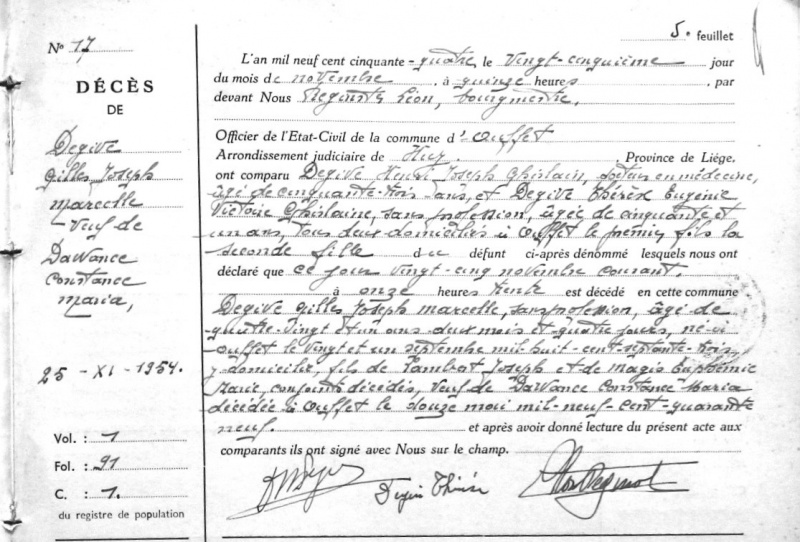 5e feuillet
No 17
DÉCÈS
DE
Degive
Gilles Joseph
Marcelle
Veuf de
DaWance
Constance
Maria,
25 - XI - 1954.
Vol. : 1
Fol. : 91
C. : 1.
du registre de population
L'an mil neuf cent cinquante-quatre le vingt-cinquième jour
du mois de novembre, à quinze heures, par
devant Nous Léon, bourgmestre,
Officier de l'Etat-Civil de la commune d'Ouffet
Arrondissement judiciaire de Huy, Province de Liége.
ont comparu Degive Henri Joseph Ghislain, docteur en médecine,
âgé de cinquante-trois ans, et Degive Thérèse Eugénie
Victoire Ghislaine, sans profession, âgée de cinquante et
un ans, tous deux domiciliés à Ouffet le premier fils la
seconde fille du défunt ci-après dénommé lesquels nous ont
déclaré que ce jour vingt-cinq novembre courant.
à onze heures trente est décédé en cette commune
Degive Gilles Joseph Marcelle, sans profession, âgé de
quatre-vingt et un ans deux mois et quatre jours, né à
Ouffet le vingt et un septembre mil-huit-cent-septante-trois
y domicilié, fils de Lambert Joseph et de Magis Euphémie
Marie, conjoints décédés, veuf de DaWance Constance Maria
décédée à Ouffet le douze mai mil-neuf-cent-quarante
neuf. et après avoir donné lecture du présent acte aux
comparants ils ont signé avec Nous sur le champ.
Degive Thérèse